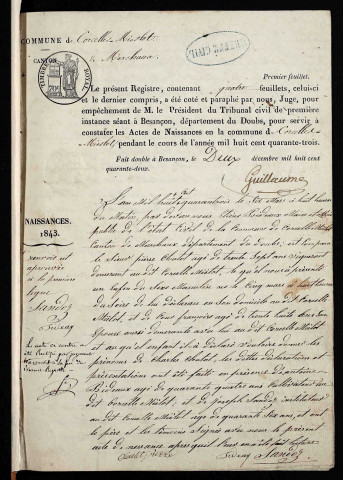 COMMUNE de Corcelle-Mieslot
CANTON de Marchaux
TIMBRE ROYAL
Premier feuillet.
Le présent Registre, contenant quatre feuillets, celui-ci
et le dernier compris, a été coté et paraphé par nous, Juge, pour
empêchement de M. le Président du Tribunal civil de première
instance séant à Besançon, département du Doubs, pour servir à
constater les Actes de Naissances en la commune de Corcelle
Mieslot pendant le cours de l'année mil huit cent quarante-trois.
Fait double à Besançon, le Deux décembre mil huit cent
quarante-deux.
Guillaume
NAISSANCES.
1843.
L'an mil huit quarante trois le Six Mars à huit heures
du Matin, par devant nous Maire et officier
public de l'état Civil de la Commune de Corcelle Mieslot
Canton de Marchaux département du doubs, est comparu
le Sieur pierre Chalot agé de trente Sept ans
demeurant au dit Corcelle Mieslot, lequel nous a présenté
un enfant du Sexe Masculin né le Cinq mars à huit heures
du Soir de lui déclarant en Son domicile au dit Corcelle
Mieslot, et de françoise agée de trente huit Son
Epouse aussi demeurante avec lui au dit Corcelle Mieslot
et au quel enfant il a déclaré vouloir donner les
prénoms de Charles Chalot, les dites déclarations et
présentations ont été faites en présence d'antoine
agé de quarante quatre ans Cultivateur au
dit Corcelle Mieslot, et de joseph Sandoz instituteur
au dit Corcelle Mieslot agé de quarante Six ans, et ont
le père et les témoins Signés avec nous le présent
acte de naissance après que
renvoi est
approuvé
à la première
ligne
Sandoz
Chalot pierre
Sandoz